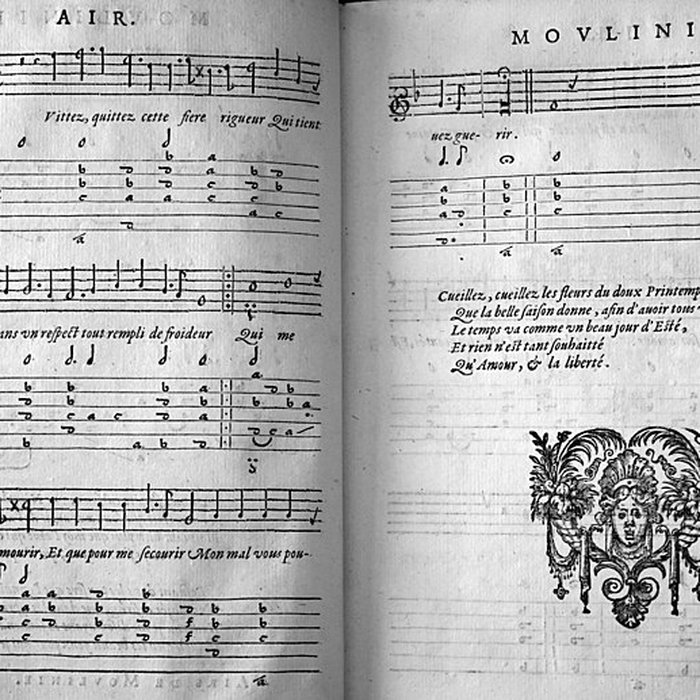 AIR.
Vittez, quittez cette fiere rigueur Qui tient
ans vn respect tout rempli de froideur Qui me
mourir, Et que pour me secourir Mon mal vous pou-
MOVLINI
uez gue- rir.
Cueillez, cueillez les fleurs du doux Printemp
Que la belle saison donne, afin d'auoir tous
Le temps va comme vn beau jour d'Esté,
Et rien n'est tant souhaitté
Qu'Amour, & la liberté.